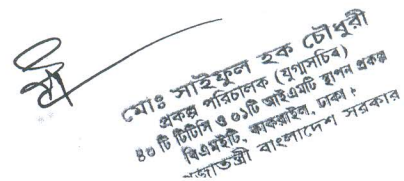 মোঃ সাইফুল হক চৌধুরী
প্রকল্প পরিচালক (যুগ্মসচিব)
৪০ টি টিটিসি ও ০১টি আইএমটি স্থাপন প্রকল্প
বিএমইটি, কাকরাইল, ঢাকা।
প্রজাতন্ত্রী বাংলাদেশ সরকার